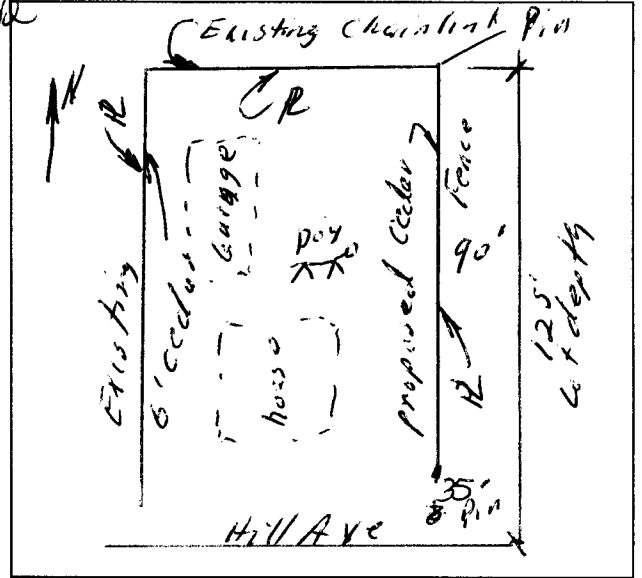 Existing Chainlink Pin
N
PL
PL
Garage
Existing
6' Cedar
Dog
house
proposed Cedar Fence
90'
PL
125'
Lot depth
35'
Pin
Hill Ave